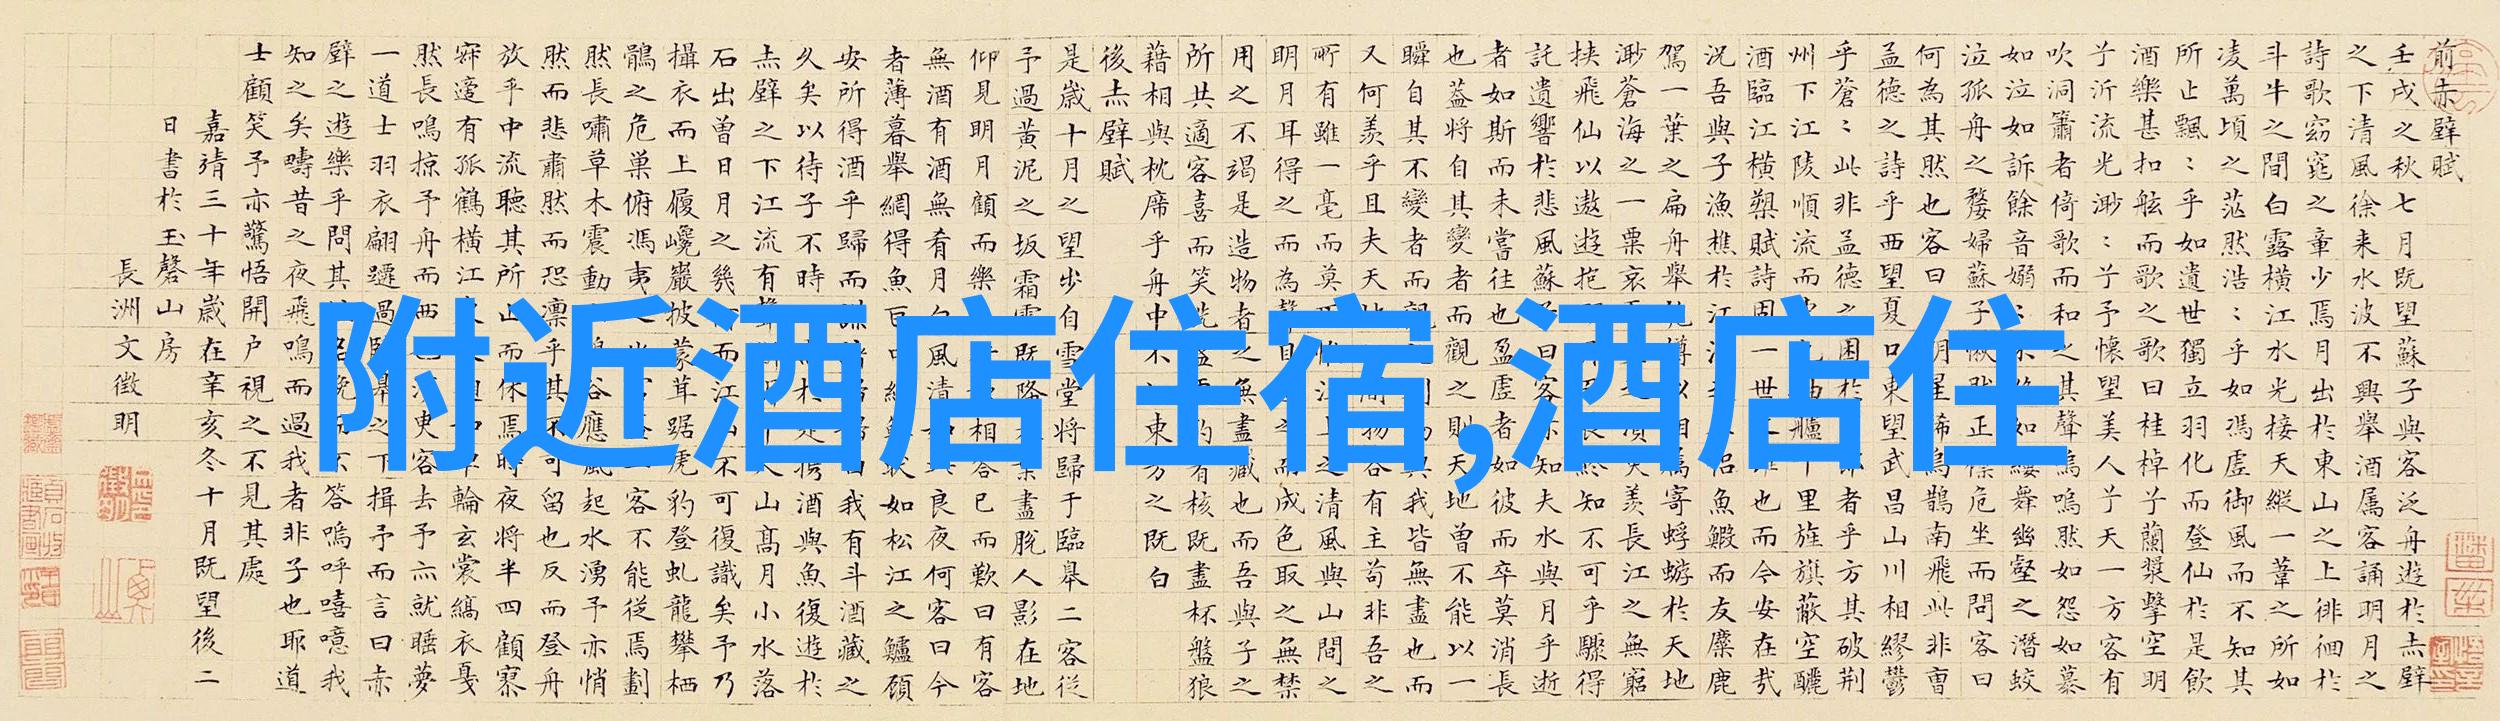 前赤壁賦
壬戌之秋七月既望蘇子與客泛舟遊於赤壁
之下清風徐来水波不興舉酒属客誦明月之
詩歌窈窕之章少焉月出於東山之上徘徊於
斗牛之間白露横江水光接天縱一葦之所如
凌萬頃之茫然浩〻乎如馮虚御風而不知其
所止飄〻乎如遺世獨立羽化而登仙於是飲
酒樂甚扣舷而歌之歌曰桂棹兮蘭槳擊空明
兮泝流光渺〻兮予懷望美人兮天一方客有
吹洞簫者倚歌而和之其聲嗚嗚然如怨如慕
如泣如訴餘音嫋〻不絲如縷舞幽壑之潜蛟
泣孤舟之嫠婦蘇子愀然正襟危坐而問客曰
何為其然也客曰明星稀烏鵲南飛此非曹
孟德之詩乎西望夏口東望武昌山川相繆鬱
乎蒼〻此非孟德之困於郎者乎方其破荆
州下江陵順流而也舳艫千里旌旗蔽空釃
酒臨江横槊賦詩固一世之雄也而今安在哉
況吾與子漁樵於江渚侶魚鰕而友麋鹿
駕一葉之扁舟舉匏樽以相属寄蜉蝣於天地
渺蒼海之一粟哀之須羨長江之無窮
挾飛仙以遨遊抱長終知不可乎驟得
託遺響於悲風蘇子曰客亦知夫水與月乎逝
者如斯而未嘗往也盈虚者如彼而卒莫消長
也蓋將自其變者而觀之則天地曾不能以一
瞬自其不變者而觀與我皆無盡也而
又何羨乎且夫天地間物各有主苟非吾之
所有雖一毫而莫惟江上之清風與山間之
明月耳得之而為聲目之而成色取之無禁
用之不竭是造物者之無盡藏也而吾與子之
所共適客喜而笑洗盞酌有核既盡杯盤狼
藉相與枕席乎舟中不東方之既白
後赤壁賦
是歳十月之望步自雪堂將歸于臨皋二客從
予過黄泥之坂霜露既降木葉盡脱人影在地
仰見明月顧而樂相答已而歎曰有客
無酒有酒無肴月白風清如良夜何客曰今
者薄暮舉網得魚巨口細鱗狀如松江之鱸顧
安所得酒乎歸而謀婦曰我有斗酒藏之
久矣以待子不時於是携酒與魚復遊於
赤壁之下江流有聲斷岸千尺山髙月小水落
石出曽日月之幾而江山不可復識矣予乃
攝衣而上履巉巖披蒙茸踞虎豹登虬龍攀栖
鶻之危巢俯馮夷客不能従焉劃
然長嘯草木震動鳴谷應風起水湧予亦悄
然而悲肅然而恐凛乎其不可留也反而登舟
放乎中流聴其所止而休焉時夜将半四顧寥
寂適有孤鶴横江東輪玄裳縞衣戞
然長鳴掠予舟而西也須臾客去予亦就睡夢
一道士羽衣翩躚過臨皋之下揖予而言曰赤
壁之遊樂乎問其姓名俛而不答嗚呼嘻噫我
知之矣疇昔之夜飛鳴而過我者非子也耶道
士顧笑予亦驚悟開户視之不見其處
嘉靖三十年歳在辛亥冬十月既望後二
日書於玉磬山房
長洲文徵明
附近酒店住宿,酒店住